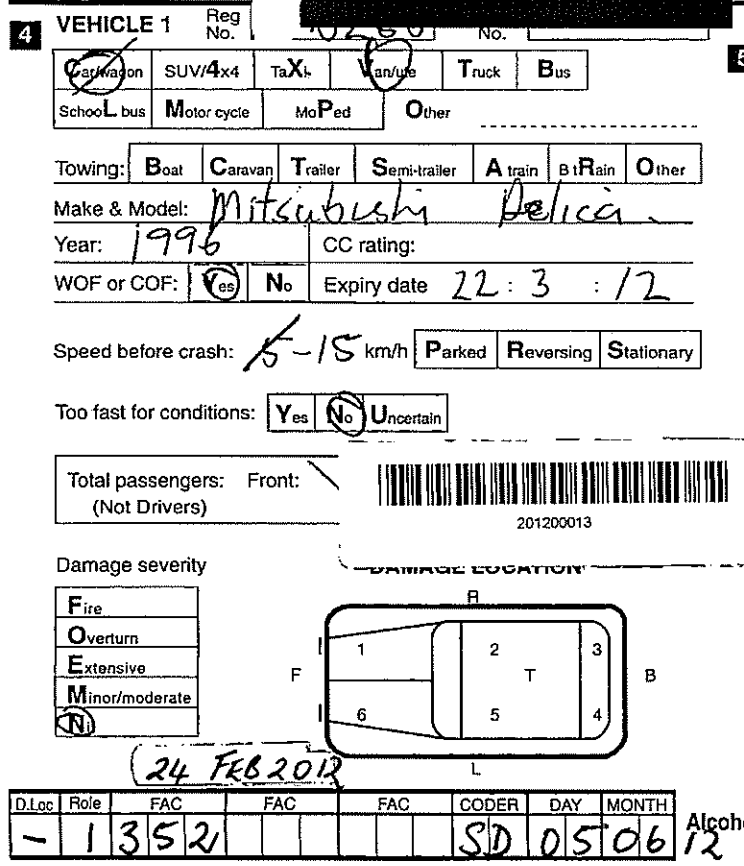 4 VEHICLE 1 Reg No. No.
Car/wagon SUV/4x4 TaXi Van/ute Truck Bus
5
SchooL bus Motor cycle MoPed Other
Towing: Boat Caravan Trailer Semi-trailer A train B tRain Other
Make & Model: Mitsubushi Delica.
Year: 1996 CC rating:
WOF or COF: Yes No Expiry date 22 : 3 : 12
Speed before crash: 5-15 km/h Parked Reversing Stationary
Too fast for conditions: Yes No Uncertain
Total passengers: Front:
(Not Drivers)
201200013
Damage severity DAMAGE LOCATION
Fire
Overturn
Extensive
Minor/moderate
Nil
R
1 2 3
F T B
6 5 4
L
24 FEB 2012
D.Loc Role FAC FAC FAC CODER DAY MONTH
- 1 352 SD 05 06 12
Alcoho